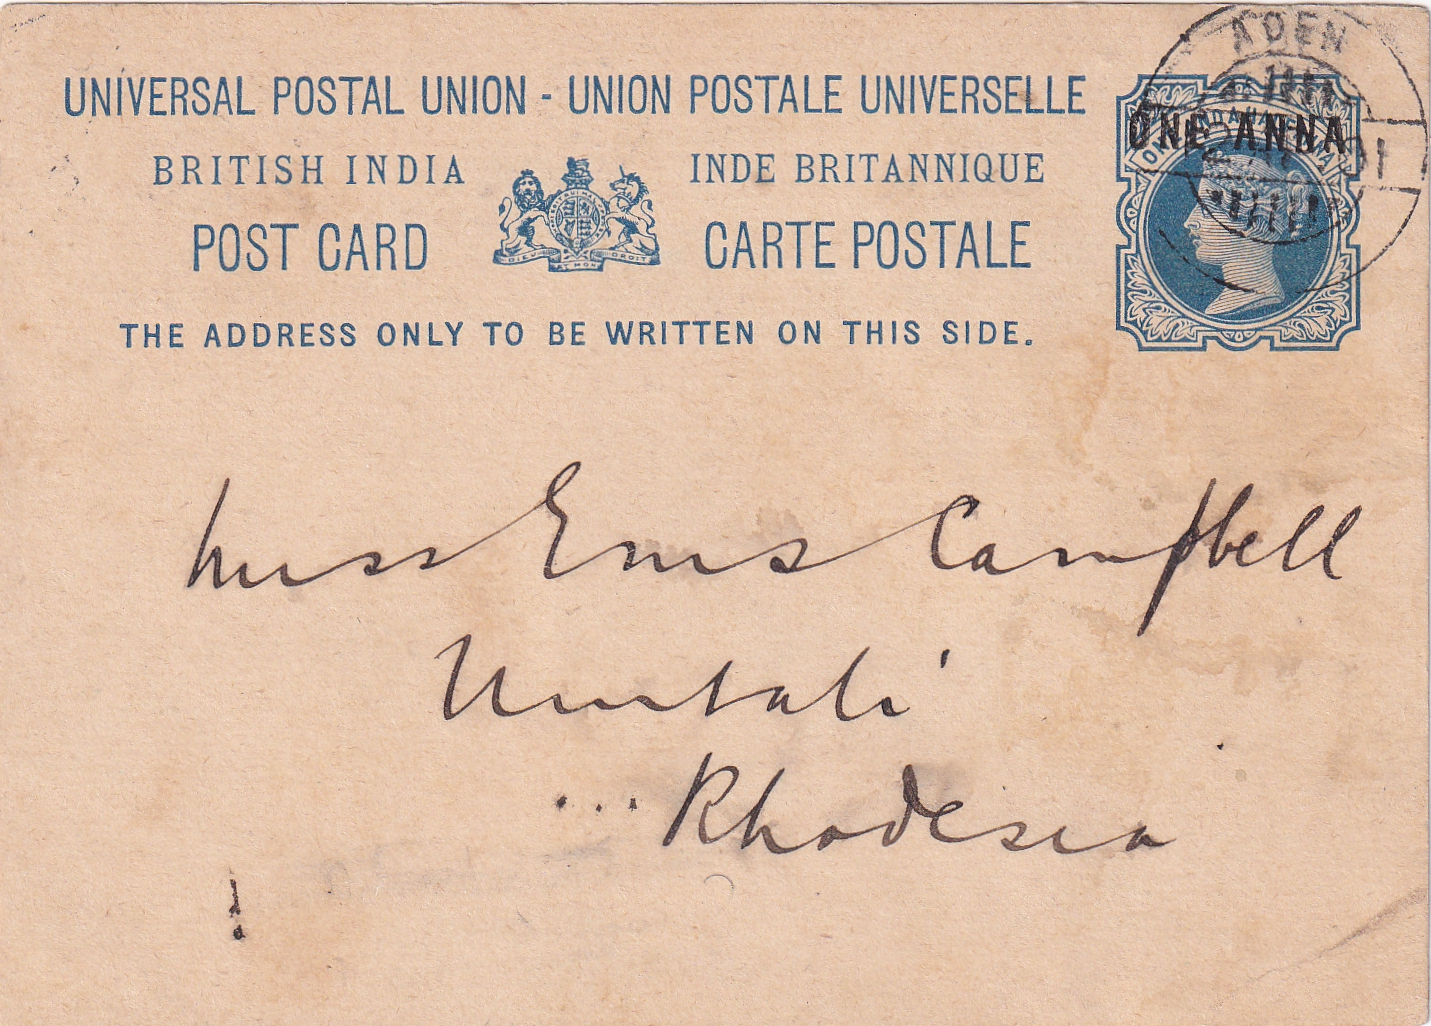 UNIVERSAL POSTAL UNION - UNION POSTALE UNIVERSELLE
BRITISH INDIA
INDE BRITANNIQUE
POST CARD
CARTE POSTALE
DIEU ET MON DROIT
THE ADDRESS ONLY TO BE WRITTEN ON THIS SIDE.
ADEN
ONE ANNA
Miss Ems Campbell
Umtali
Rhodesia